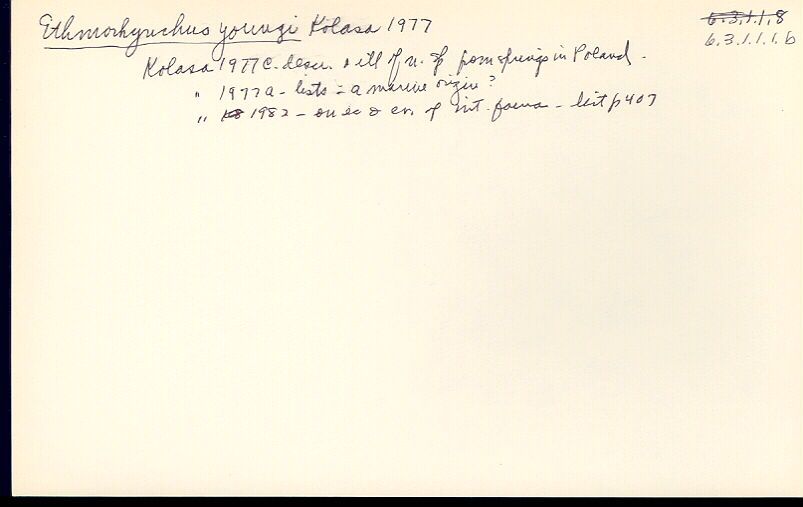 Ethmorhynchus youngi Kolasa 1977
6.3.1.1.8
6.3.1.1.1.6
Kolasa 1977c. descr. & ill of n. sp. from springs in Poland.
" 1977a - lists = a marine origin?
" 1982 - on ec & ev. of int. fauna - list p 407